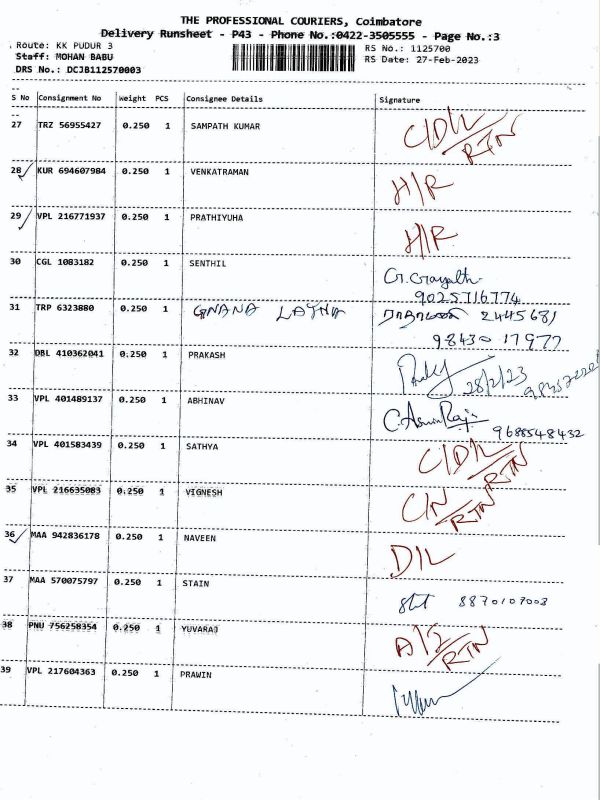 THE PROFESSIONAL COURIERS, Coimbatore
Delivery Runsheet - P43 - Phone No.:0422-3505555 - Page No.:3
Route: KK PUDUR 3 RS No.: 1125700
Staff: MOHAN BABU RS Date: 27-Feb-2023
DRS No.: DCJB112570003
S No Consignment No Weight PCS Consignee Details Signature
27 TRZ 56955427 0.250 1 SAMPATH KUMAR C/D/L
RTN
28 KUR 694607984 0.250 1 VENKATRAMAN H/R
29 VPL 216771937 0.250 1 PRATHIYUHA H/R
30 CGL 1083182 0.250 1 SENTHIL
9025716774
31 TRP 6323880 0.250 1 GNANA LATHA 2445681
98430 17977
32 DBL 410362041 0.250 1 PRAKASH
28/2/23
33 VPL 401489137 0.250 1 ABHINAV
9688548432
34 VPL 401583439 0.250 1 SATHYA C/D/L
RTN
35 VPL 216635083 0.250 1 VIGNESH C/N
RTN
36 MAA 942836178 0.250 1 NAVEEN D/L
37 MAA 570075797 0.250 1 STAIN 8870107003
38 PNU 756258354 0.250 1 YUVARAJ
RTN
39 VPL 217604363 0.250 1 PRAWIN